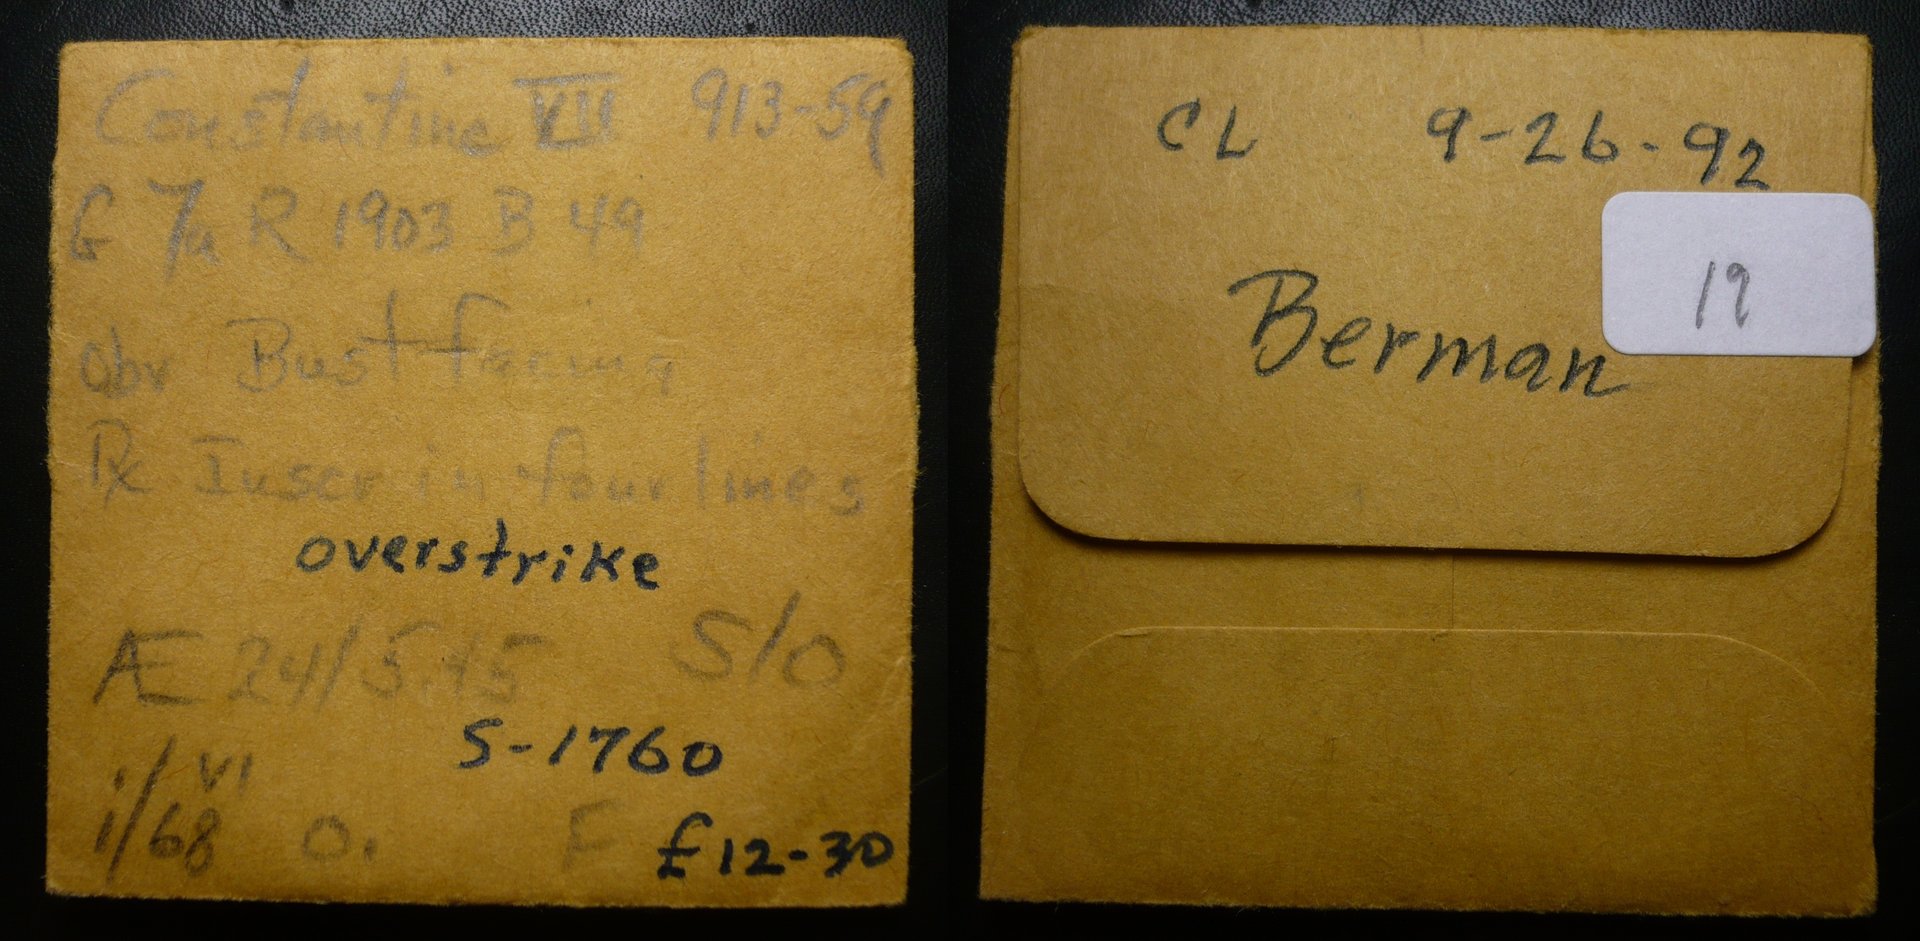 Constantine VII 913-59
G 7a R 1903 B 49
Obv Bust facing
Rx Inscr in four lines
overstrike
Æ 24/5.45 S/O
S-1760
i/VI
i/68 O. F £12-30
CL 9-26-92
19
Berman